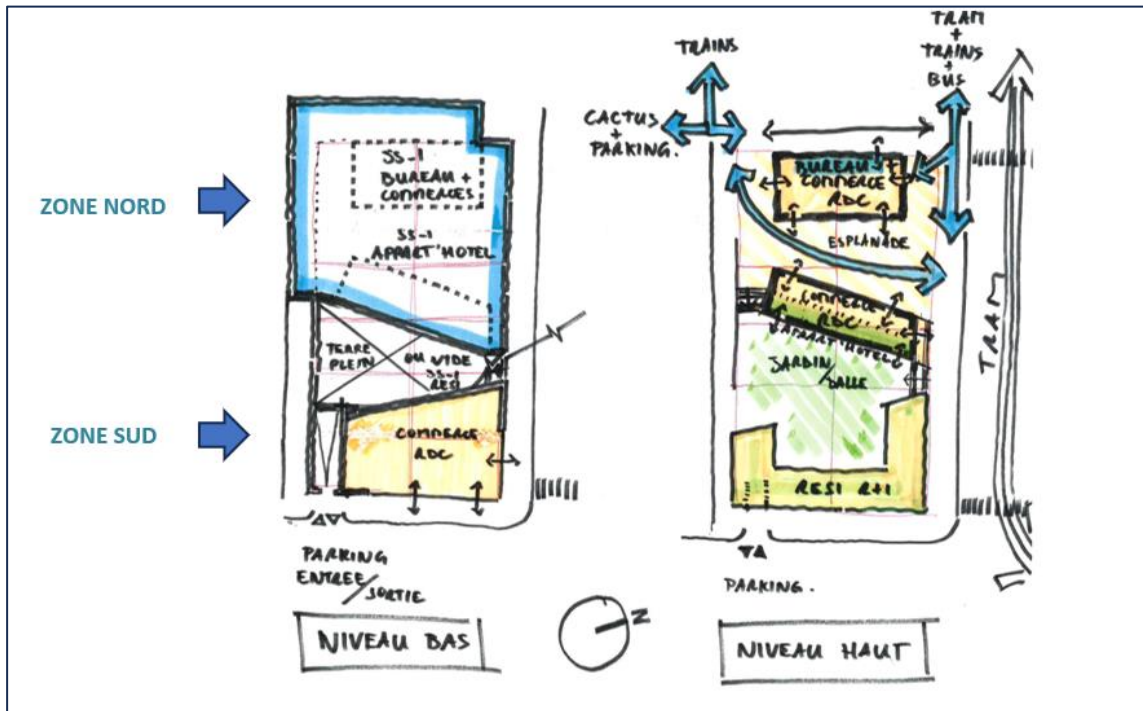 ZONE NORD
ZONE SUD
SS-1
BUREAU +
COMMERCES
SS-1
APPART'HOTEL
TERRE
PLEIN
OU VIDE
SS-1
RESI
COMMERCE
RDC
PARKING
ENTREE
/SORTIE
NIVEAU BAS
N
TRAINS
CACTUS
+
PARKING.
TRAM
+
TRAINS
+
BUS
BUREAU +
COMMERCE
RDC
ESPLANADE
COMMERCE
RDC
APPART'HOTEL
JARDIN
/DALLE
RESI R+1
TRAM
PARKING.
NIVEAU HAUT